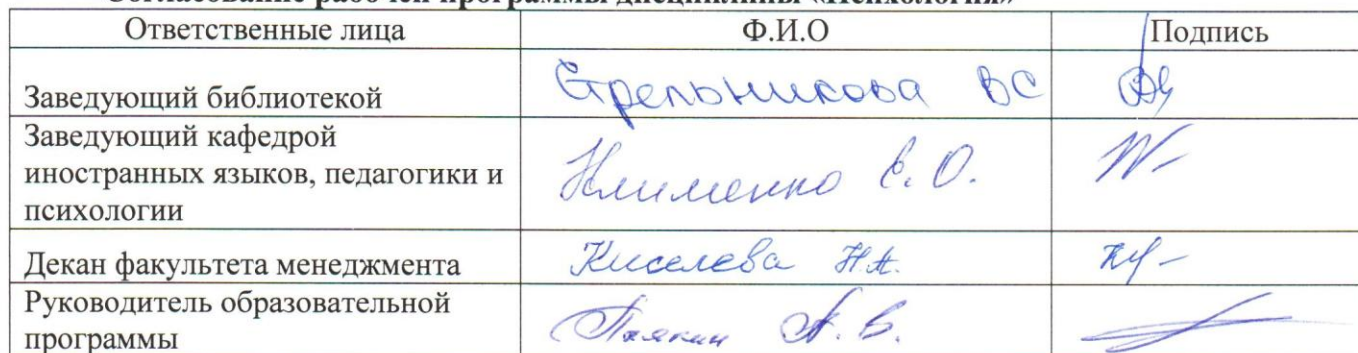 Согласование рабочей программы дисциплины «Психология»
Ответственные лица Ф.И.О Подпись
Заведующий библиотекой Стрельникова ВС
Заведующий кафедрой
иностранных языков, педагогики и
психологии Клименко Е.О.
Декан факультета менеджмента Киселева Н.А.
Руководитель образовательной
программы А.В.